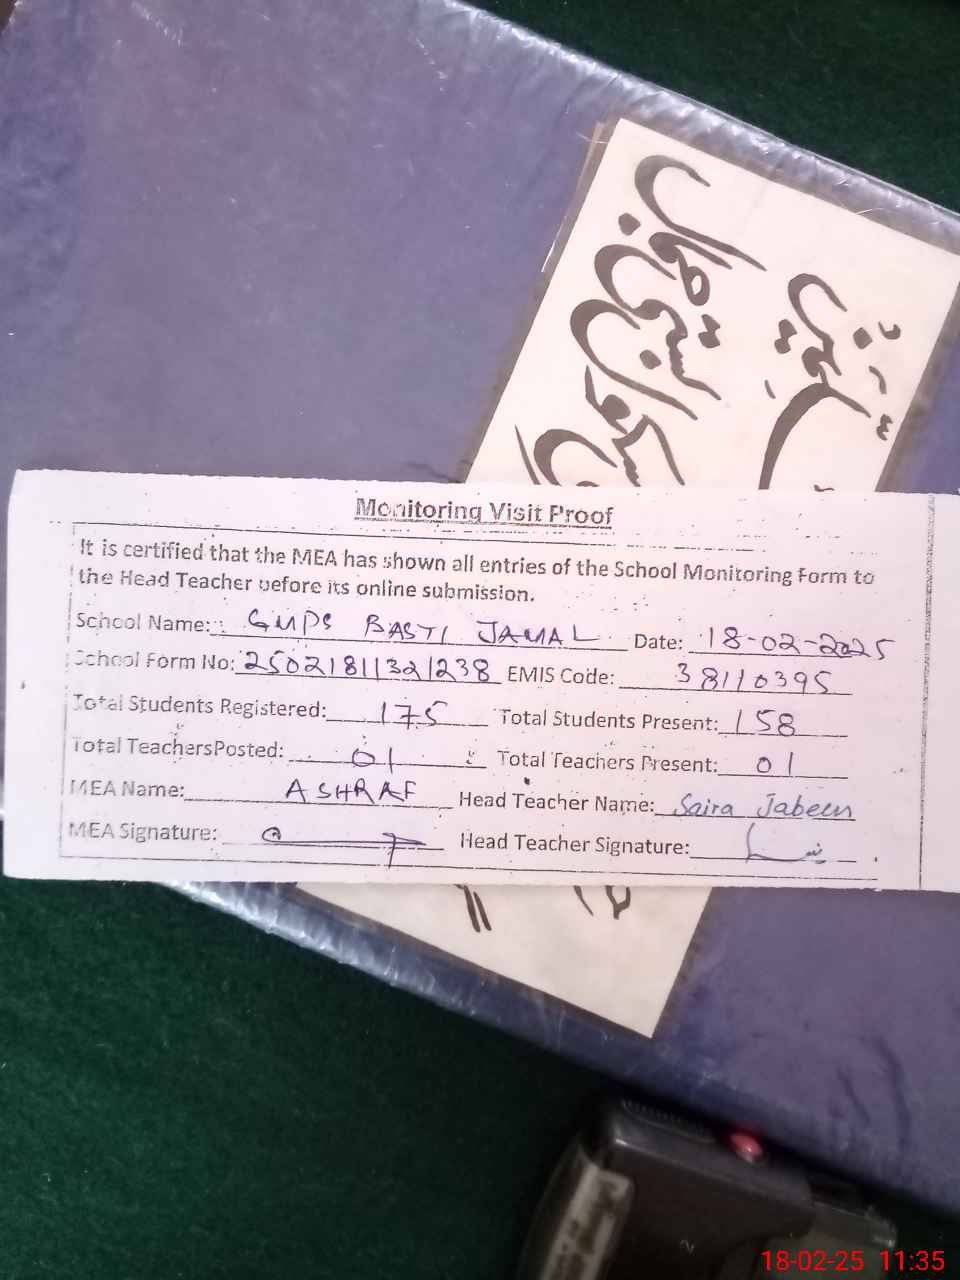 بستی جمال
سکول
Monitoring Visit Proof
It is certified that the MEA has shown all entries of the School Monitoring Form to
the Head Teacher before its online submission.
School Name: GMPS BASTI JAMAL Date: 18-02-2025
School Form No: 25021811321238 EMIS Code: 38110395
Total Students Registered: 175 Total Students Present: 158
Total TeachersPosted: 01 Total Teachers Present: 01
MEA Name: ASHRAF Head Teacher Name: Saira Jabeen
MEA Signature: Head Teacher Signature:
18-02-25 11:35